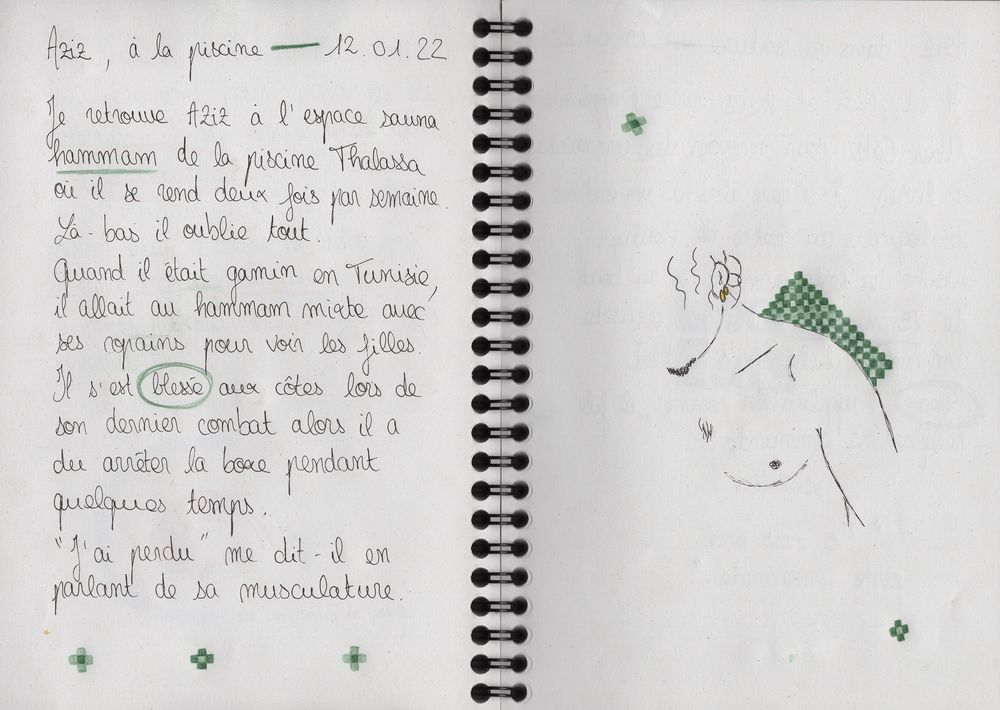 Aziz, à la piscine — 12.01.22
Je retrouve Aziz à l'espace sauna
hammam de la piscine Thalassa
où il se rend deux fois par semaine.
Là-bas il oublie tout.
Quand il était gamin en Tunisie,
il allait au hammam mixte avec
ses copains pour voir les filles.
Il s'est blessé aux côtes lors de
son dernier combat alors il a
du arrêter la boxe pendant
quelques temps.
"J'ai perdu" me dit-il en
parlant de sa musculature.